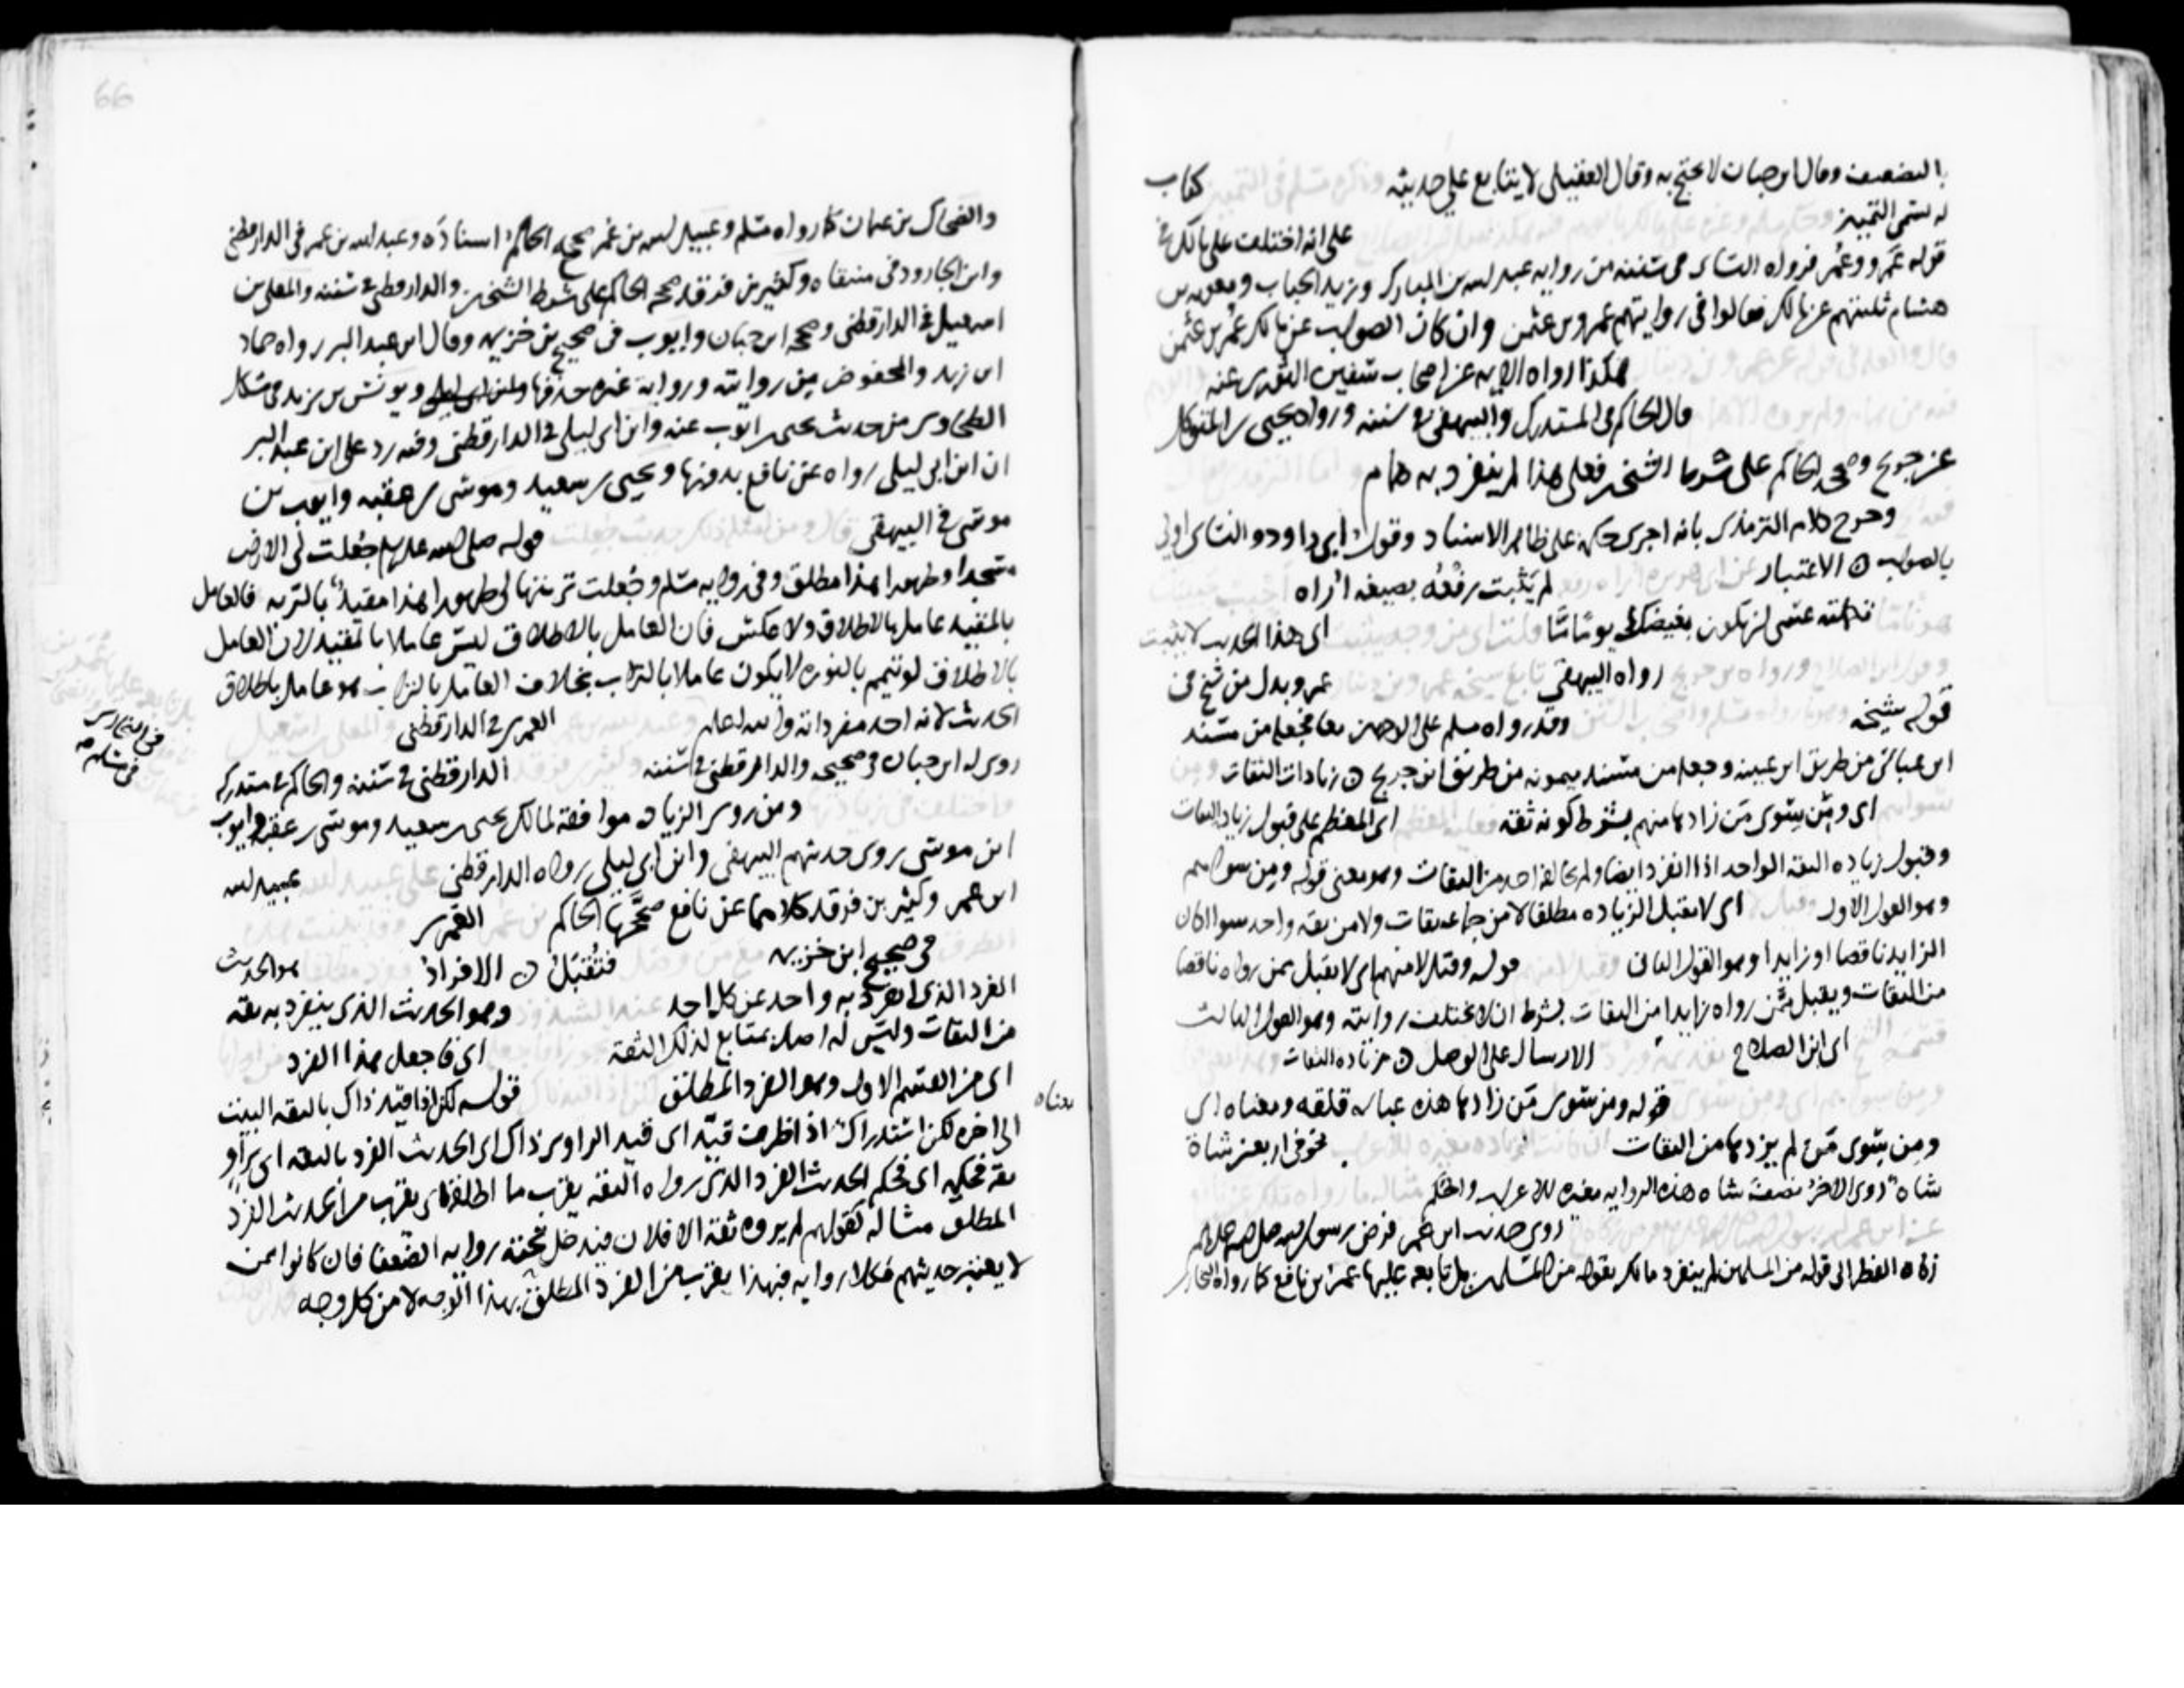 بالتضعيف وقال ابن حبان لا يحتج به وقال العقيلي لا يتابع علي حديثه كتاب
له سمى التمييز على انه اختلف على مالك في
قوله عمرو وعمر فرواه النساى في سننه من رواية عبد الله بن المبارك وزيد الحباب ومعوية بن
هشام ثلثتهم عن مالك فقالوا في روايتهم عمرو بن عثمن وان كان الصواب عن مالك عمر بن عثمن
هكذا رواه الايمه عن اصحاب سفين الثوري عنه
قال الحاكم في المستدرك والبيهقي في سننه ورواه يحيى بن المتوكل
عن جريج وصححه الحاكم على شرط الشيخين فعلى هذا لم ينفرد به همام
وخرج كلام الترمذي بانه اجرى حكمه على ظاهر الاسناد وقول ابي داود والنساى اولى
بالصواب ه الاعتبار لم يثبت رفعه بصيغه اراه
تمامه عسى ان يكون بغيضك يوما ما اى هذا الحديث لا يثبت
رواه البيهقي عمرو بدل من شيخ في
قوله شيخه وقد رواه مسلم على الوجهين معا فجعله من مسند
ابن عباس من طريق ابن عيينه وجعله من مسند ميمونه من طريق ابن جريج ه زيادات الثقات
اى ومن سوى من زادها منهم بشرط كونه ثقه اى المعظم على قبول زياد الثقات
وقبول زياده الثقه الواحد اذا انفرد ايضا ولم يخالفه احد من الثقات وهو معنى قوله ومن سواهم
وهو القول الاول اى لا تقبل الزياده مطلقا لا من جماعه ثقات ولا من ثقه واحد سوا كان
الزايد ناقصا او زايدا وهو القول الثاني قوله وقيل لا منهم اى لا يقبل ممن رواه ناقصا
من الثقات ويقبل ممن رواه زايدا من الثقات بشرط ان لا تختلف روايته وهو القول الثالث
اى ابن الصلاح الارسال على الوصل ه من زياده الثقات
قوله ومن سوى من زادها هذه عباره قلقه ومعناه اى
ومن سوى من لم يزدها من الثقات نحو في اربعين شاة
شاة روى الاخر نصف شاه هذه الروايه مغيره للاعراب والحكم
روى حديث ابن عمر فرض رسول الله صلى الله عليه وسلم
زكاه الفطر الى قوله من المسلمين لم ينفرد مالك بقوله من المسلمين بل تابعه عليها عمر بن نافع كما رواه البخاري
66
والضحاك بن عثمان كما رواه مسلم وعبيد الله بن عمر صحح الحاكم اسناده وعبد الله بن عمر في الدارقطني
وابن الجارود في منتقاه وكثير بن فرقد صححه الحاكم على شرط الشيخين والدارقطني في سننه والمعلى بن
اسمعيل في الدارقطني وصححه ابن حبان وايوب في صحيح بن خزيمه وقال ابن عبد البر رواه حماد
ابن زيد والمحفوض من روايته ورواية غيره حذفها ويونس بن يزيد في مشكل
الطحاوى من حديث يحيى بن ايوب عنه وابن ابي ليلى في الدارقطني وفيه رد على ابن عبد البر
ان ابن ابي ليلى رواه عن نافع بدونها ويحيى بن سعيد وموسى بن عقبه وايوب بن
موسى في البيهقي قوله صلى الله عليه وسلم جعلت لي الارض
مسجدا وطهورا هذا مطلق وفي رواية مسلم وجعلت تربتها لي طهورا هذا مقيد بالتربه فالعامل
بالمقيد عامل بالاطلاق ولا عكس فان العامل بالاطلاق ليس عاملا بالمقيد لان العامل
بالاطلاق لو تيمم بالنوره لا يكون عاملا بالتراب بخلاف العامل بالتراب هو عامل باطلاق
الحديث لانه احد مفرداته والله اعلم العمرى في الدارقطني
في البخارى
في مسلم صح
روى له ابن حبان في صحيحه والدارقطني في سننه الدارقطني في سننه والحاكم في مستدركه
ومن روى الزياده موافقة لمالك يحيى بن سعيد وموسى بن عقبه وايوب
ابن موسى روى حديثهم البيهقي وابن ابي ليلى رواه الدارقطني عبيد الله
ابن عمر وكثير بن فرقد كلاهما عن نافع صححها الحاكم العمرى
في صحيح ابن خزيمه فتقبل ه الافراد هو الحديث
الفرد الذى انفرد به واحد عن كل احد وهو الحديث الذى ينفرد به ثقه
من الثقات وليس له اصل متابع لذلك الثقة اى فاجعل هذا الفرد
اى من القسم الاول وهو الفرد المطلق قوله لكن اذا قيد ذاك بالثقه البيت
معناه
الى اخره لكن استدراك اذ ظرف قيد اى قيد الراوى ذاك اى الحديث الفرد بالثقه اى براو
ثقه فحكمه اى فحكم الحديث الفرد الذى رواه الثقه يقرب مما اطلقه اى يقرب من الحديث الفرد
المطلق مثاله كقولهم لم يروه ثقة الا فلان فيدخل تحته روايه الضعفا فان كانوا ممن
لا يعتبر حديثهم فكلا روايه فبهذا يقرب من الفرد المطلق بهذا الوجه لا من كل وجه